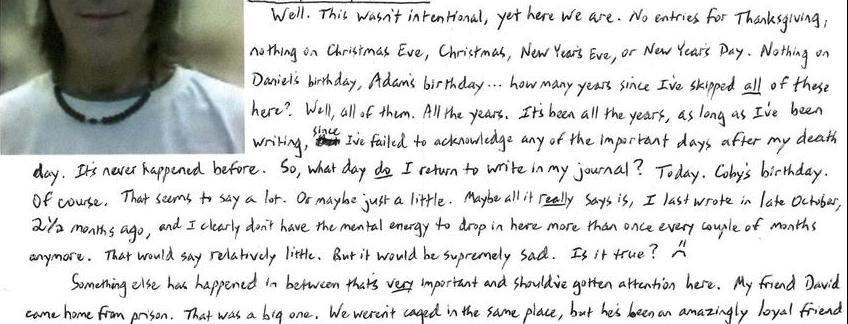 Well. This wasn't intentional, yet here we are. No entries for Thanksgiving,
nothing on Christmas Eve, Christmas, New Year's Eve, or New Year's Day. Nothing on
Daniel's birthday, Adam's birthday... how many years since I've skipped all of these
here? Well, all of them. All the years. It's been all the years, as long as I've been
writing, since I've failed to acknowledge any of the important days after my death
day. It's never happened before. So, what day do I return to write in my journal? Today. Coby's birthday.
Of course. That seems to say a lot. Or maybe just a little. Maybe all it really says is, I last wrote in late October,
2½ months ago, and I clearly don't have the mental energy to drop in here more than once every couple of months
anymore. That would say relatively little. But it would be supremely sad. Is it true?
Something else has happened in between that's very important and should've gotten attention here. My friend David
came home from prison. That was a big one. We weren't caged in the same place, but he's been an amazingly loyal friend